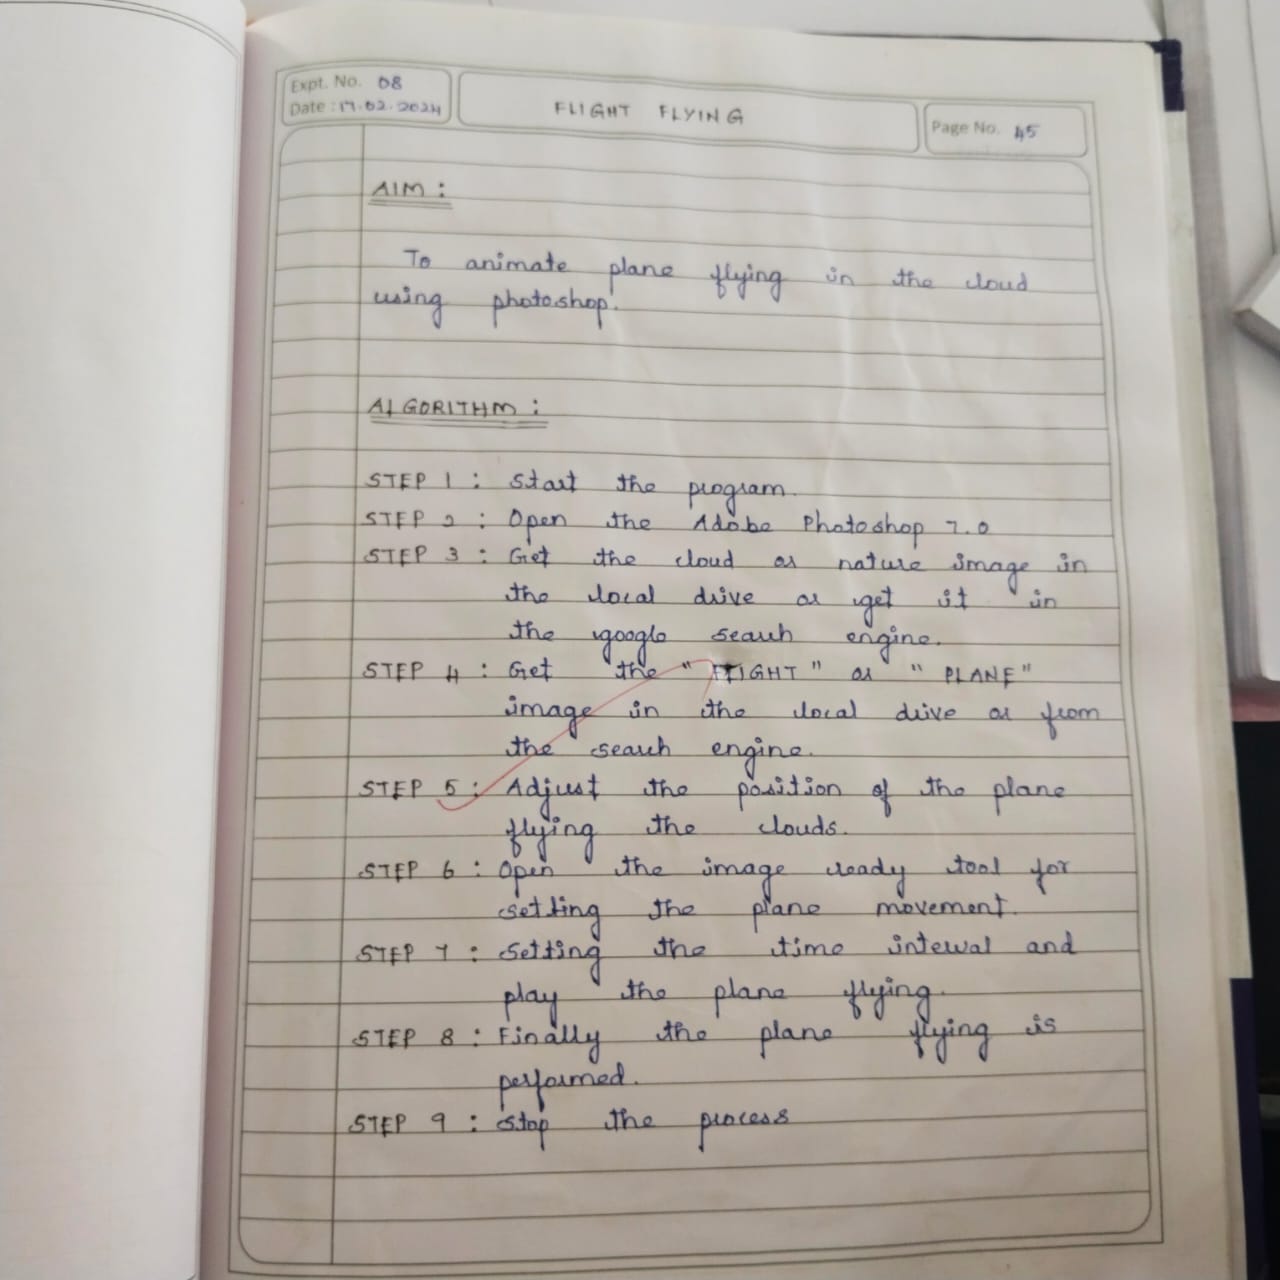 Expt. No. 08
Date : 17.02.2024
FLIGHT FLYING
Page No. 45
AIM :
To animate plane flying in the cloud
using photoshop.
ALGORITHM :
STEP 1 : Start the program.
STEP 2 : Open the Adobe Photoshop 7.0
STEP 3 : Get the cloud or nature image in
the local drive or get it in
the google search engine.
STEP 4 : Get the "FLIGHT" or "PLANE"
image in the local drive or from
the search engine.
STEP 5 : Adjust the position of the plane
flying the clouds.
STEP 6 : Open the image ready tool for
setting the plane movement.
STEP 7 : Setting the time interval and
play the plane flying.
STEP 8 : Finally the plane flying is
performed.
STEP 9 : Stop the process